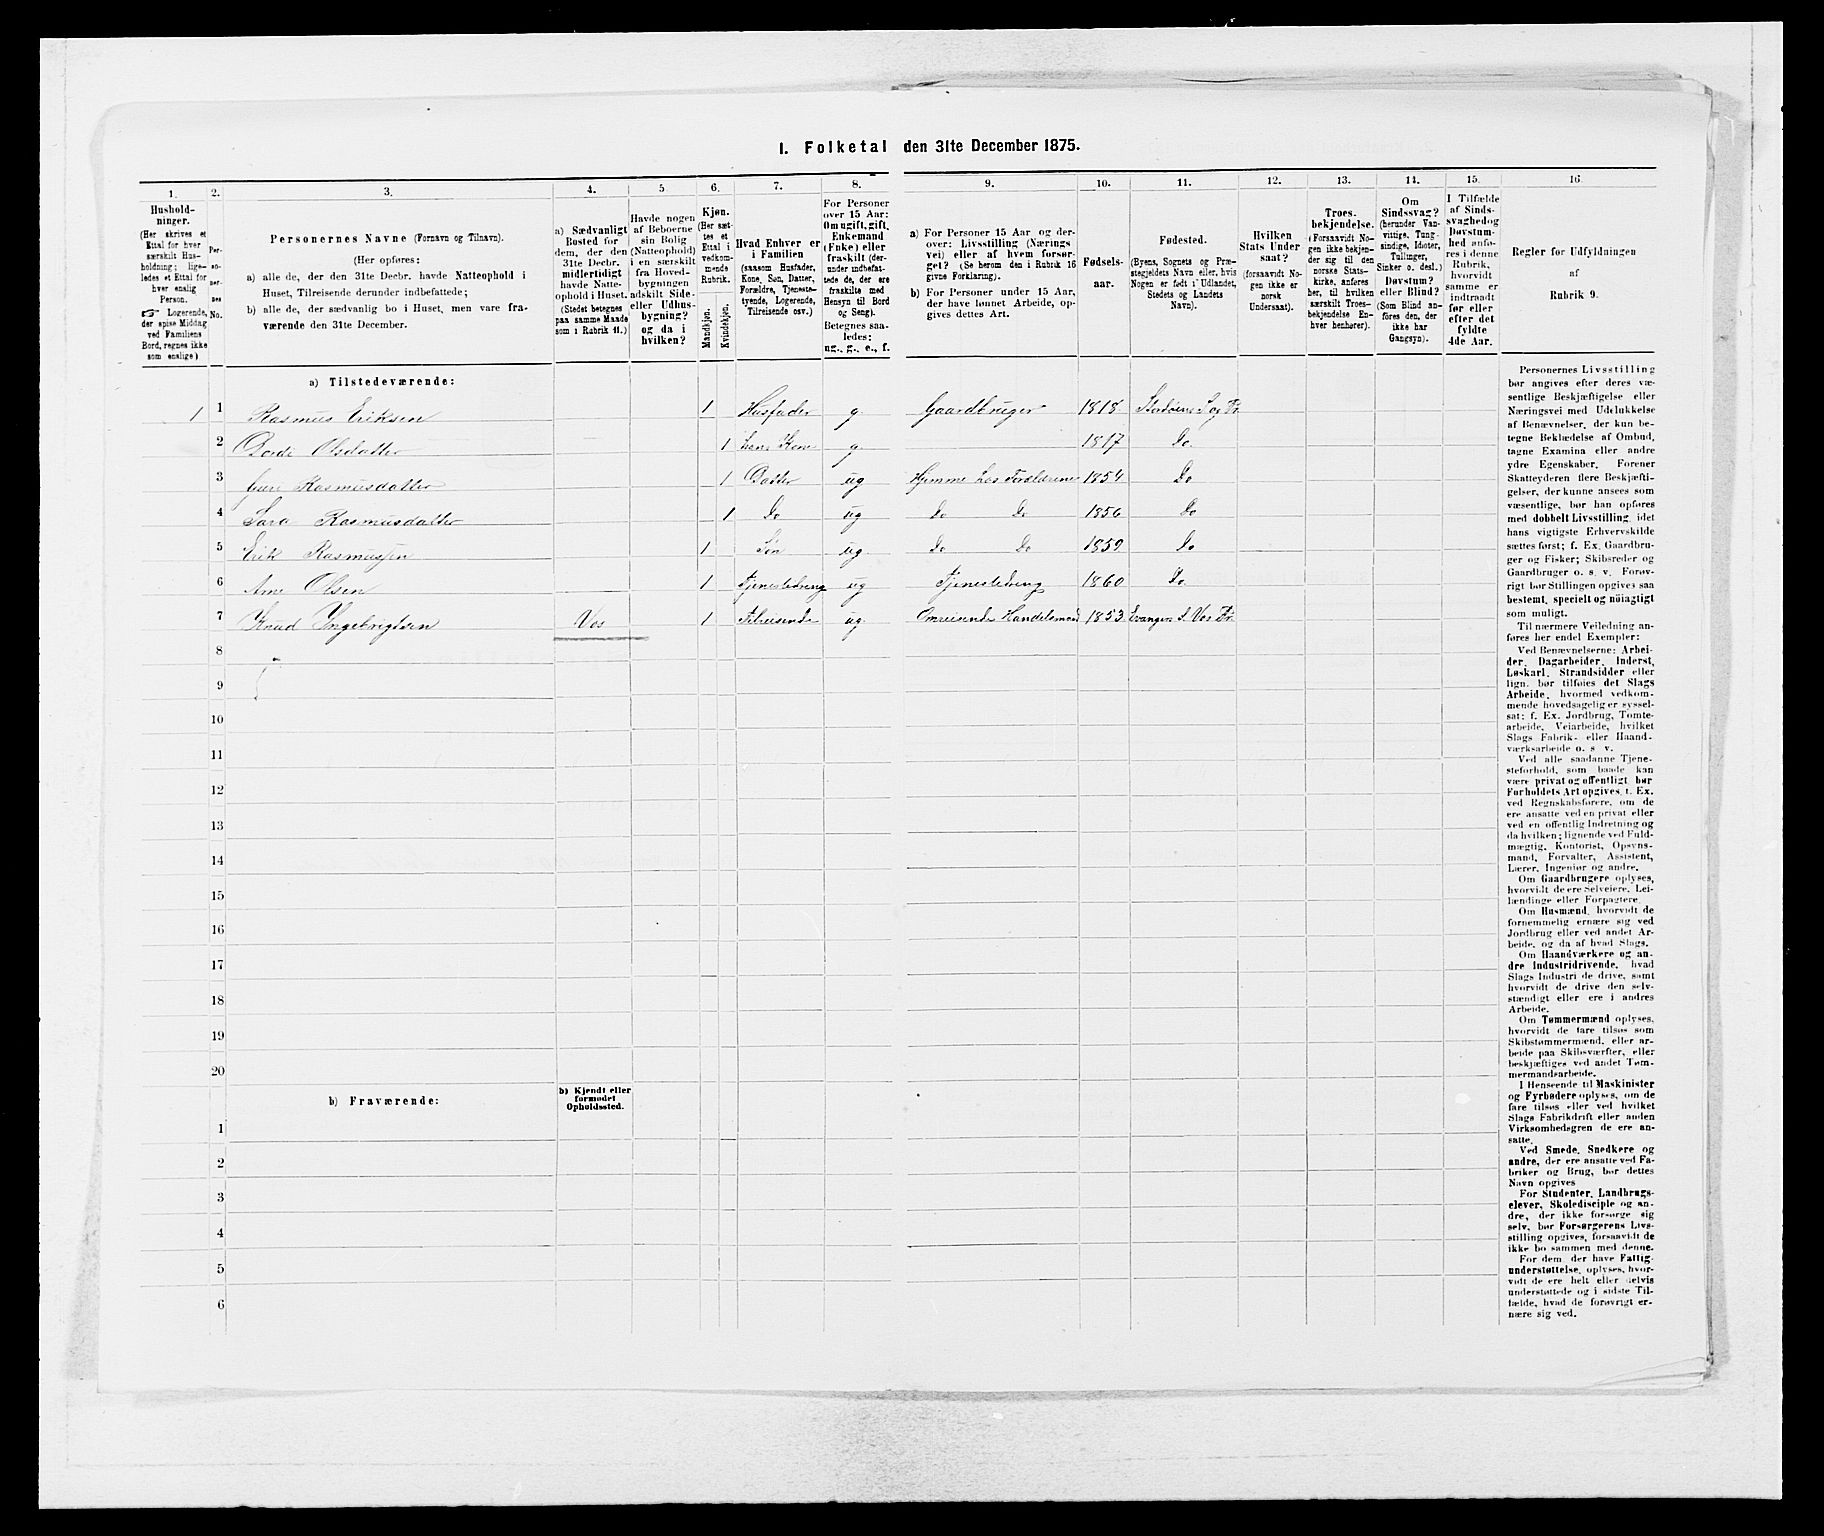 I. Folketal den 31te December 1875.
1. 2. 3. 4. 5. 6. 7. 8. 9. 10. 11. 12. 13. 14. 15. 16.
Hushold-
ninger.
(Her skrives et
Ettal for hver
særskilt Hus-
holdning; lige-
ledes et Ettal for
hver enslig
Person.
☞ Logerende,
der spise Middag
ved Familiens
Bord, regnes ikke
som enslige)
Per-
so-
ner-
nes
No.
Personernes Navne (Fornavn og Tilnavn).
(Her opføres:
a) alle de, der den 31te Decbr. havde Natteophold i
Huset, Tilreisende derunder indbefattede;
b) alle de, der sædvanlig bo i Huset, men vare fra-
værende den 31te December.
a) Sædvanligt
Bosted for
dem, der den
31te Decbr.
midlertidigt
havde Natte-
ophold i Huset.
(Stedet betegnes
paa samme Maade
som i Rubrik 11.)
Havde nogen
af Beboerne
sin Bolig
(Natteophold)
i en særskilt
fra Hoved-
bygningen
adskilt Side-
eller Udhus-
bygning?
og da i
hvilken?
Kjøn.
(Her sæt-
tes et
Ettal i
vedkom-
mende
Rubrik.
Mandkjøn.
Kvindekjøn.
Hvad Enhver er
i Familien
(saasom Husfader,
Kone, Søn, Datter,
Forældre, Tjeneste-
tyende, Logerende,
Tilreisende osv.)
For Personer
over 15 Aar:
Om ugift, gift,
Enkemand
(Enke) eller
fraskilt (der-
under indbefat-
tede de, der ere
fraskilte med
Hensyn til Bord
og Seng).
Betegnes saa-
ledes:
ug., g., e., f.
a) For Personer 15 Aar og der-
over: Livsstilling (Nærings
vei) eller af hvem forsør-
get? (Se herom den i Rubrik 16
givne Forklaring).
b) For Personer under 15 Aar,
der have lønnet Arbeide, op-
gives dettes Art.
Fødsels-
aar.
Fødested.
(Byens, Sognets og Præ-
stegjeldets Navn eller, hvis
Nogen er født i Udlandet,
Stedets og Landets
Navn).
Hvilken
Stats Under
saat?
(forsaavidt No-
gen ikke er
norsk
Undersaat).
Troes-
bekjendelse.
(Forsaavidt No-
gen ikke bekjen-
der sig til den
norske Stats-
kirke, anføres
her, til hvilken
særskilt Troes-
bekjendelse En-
hver henhører).
Om
Sindssvag?
(herunder Van-
vittige, Tung-
sindige, Idioter,
Tullinger,
Sinker o. desl.)
Døvstum?
eller Blind?
(Som Blind an-
føres den, der
ikke har
Gangsyn).
I Tilfælde
af Sinds-
svaghed og
Døvstum-
hed anfø-
res i denne
Rubrik,
hvorvidt
samme er
indtraadt
før eller
efter det
fyldte
4de Aar.
Regler for Udfyldningen
af
Rubrik 9.
a) Tilstedeværende:
1 1 Rasmus Eriksen 1 Husfader g. Gaardbruger 1818 Stordøens S og Pr.
2 Olsdatter 1 hans Kone g. 1817 Do.
3 Guri Rasmusdatter 1 Datter ug Hjemme hos Forældrene 1854 Do
4 Sara Rasmusdatter 1 Do ug Do Do 1856 Do
5 Erik Rasmussen 1 Søn ug. Do Do 1859 Do
6 Arne Olsen 1 Tjenestedreng ug Tjenestedreng 1860 Do
7 Knud Ingebrigtsen Vos 1 Tilreisende ug. Omreisende Handelsmand 1853 Evangers S. Vos Pr.
8
9
10
11
12
13
14
15
16
17
18
19
20
b) Fraværende:
b) Kjendt eller
formodet
Opholdssted.
1
2
3
4
5
6
Personernes Livsstilling
bør angives efter deres væ-
sentlige Beskjæftigelse eller
Næringsvei med Udelukkelse
af Benævnelser, der kun be-
tegne Beklædelse af Ombud,
tagne Examina eller andre
ydre Egenskaber. Forener
Skatteyderen flere Beskjæfti-
gelser, der kunne ansees som
væsentlige, bør han opføres
med dobbelt Livsstilling, idet
hans vigtigste Erhvervskilde
sættes først; f. Ex. Gaardbru-
ger og Fisker; Skibsreder og
Gaardbruger o. s. v. Forøv-
rigt bør Stillingen opgives saa
bestemt, specielt og nøiagtigt
som muligt.
Til nærmere Veiledning an-
føres her endel Exempler:
Ved Benævnelserne: Arbei-
der, Dagarbeider, Inderst,
Løskarl, Strandsidder eller
lign. bør tilføies det Slags
Arbeide, hvormed vedkom-
mende hovedsagelig er syssel-
sat; f. Ex. Jordbrug, Tomte-
arbeide, Veiarbeide, hvilket
Slags Fabrik- eller Haand-
værksarbeide o. s. v.
Ved alle saadanne Tjene-
steforhold, som baade kan
være privat og offentligt, bør
Forholdets Art opgives, f. Ex.
ved Regnskabsførere, om de
ere ansatte ved en privat eller
ved en offentlig Indretning og
da hvilken; lignende ved Fuld-
mægtig, Kontorist, Opsyns-
mand, Forvalter, Assistent,
Lærer, Ingeniør og andre.
Om Gaardbrugere oplyses,
hvorvidt de ere Selveiere, Lei-
lændinge eller Forpagtere.
Om Husmænd, hvorvidt de
fornemmelig ernære sig ved
Jordbrug eller ved andet Ar-
beide, og da af hvad Slags.
Om Haandværkere og an-
dre Industridrivende, hvad
Slags Industri de drive, samt
hvorvidt de drive den selv-
stændigt eller ere i andres
Arbeide.
Om Tømmermænd oplyses,
hvorvidt de fare tilsøs som
Skibstømmermænd, eller ar-
beide paa Skibsværfter, eller
beskjæftiges ved andet Tøm-
mermandsarbeide.
I Henseende til Maskinister
og Fyrbødere oplyses, om de
fare tilsøs eller ved hvilket
Slags Fabrikdrift eller anden
Virksomhedsgren de ere an-
satte.
Ved Smede, Snedkere og
andre, der ere ansatte ved Fa-
briker og Brug, bør dettes
Navn opgives
For Studenter, Landbrugs-
elever, Skoledisciple og an-
dre, der ikke forsørge sig
selv, bør Forsørgerens Livs-
stilling opgives, forsaavidt de
ikke bo sammen med denne.
For dem, der have Fattig-
understøttelse, oplyses, hvor-
vidt de ere helt eller delvis
understøttede og i sidste Til-
fælde, hvad de forøvrigt er-
nære sig ved.